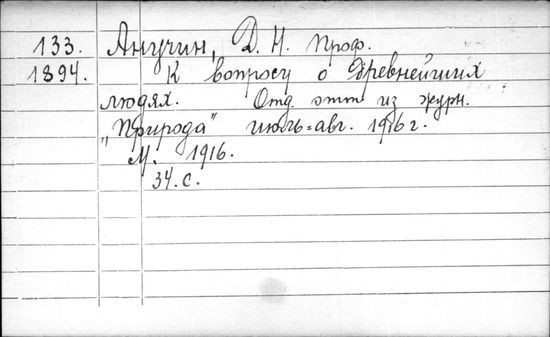 133. Анучин, Д. Н. Проф.
1894. К вопросу о древнейших
людях. Отд. отт из журн.
„Природа" июль=авг. 1916 г.
М. 1916.
34. с.